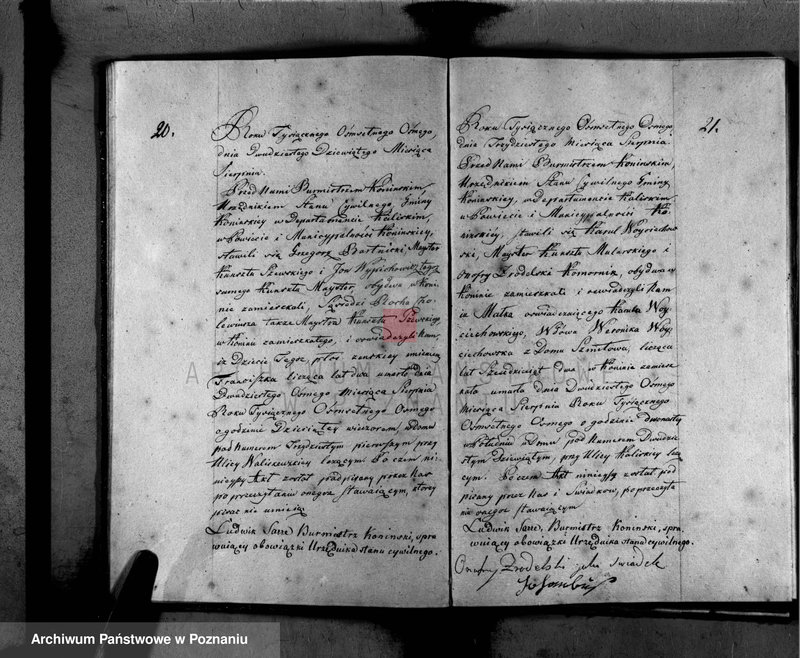 20.
Roku Tysiącznego Ośmsetnego Ósmego,
dnia Dwudziestego Dziewiątego Miesiąca
Sierpnia.
Przed Nami Burmistrzem Konińskim,
Urzędnikiem Stanu Cywilnego, Gminy
Konińskiey w Departamencie Kaliskim,
w Powiecie i Municypalności Konińskiey,
stawili się Grzegorz Bartnicki Mayster
Kunsztu Szewskiego i Jan tegoż
samego Kunsztu Mayster, obydwa w Koni-
nie zamieszkali, Sąsiedzi Rocha
także Maystra Kunsztu Szewskiego
w Koninie zamieszkałego, i oswiadczyli Nam,
iż Dziecie Tegoż płci żeńskiey imieniem
Franciszka licząca lat dwa umarło dnia
Dwudziestego Ósmego Miesiąca Sierpnia
Roku Tysiącznego Ośmsetnego Ósmego
o godzinie Dziesiątey wieczorem, w Domu
pod Numerem Trzydziestym pierwszym przy
Ulicy leżącym. Po czem ni-
nieyszy Akt został podpisany przez Nas
po przeczytaniu onegoż stawaiącym, ktorzy
pisać nie umieią.
Ludwik Sarre, Burmistrz Koninski, spra-
wuiący obowiązki Urzędnika stanu cywilnego.
21.
Roku Tysiącznego Ośmsetnego Ósmego
dnia Trzydziestego Miesiąca Sierpnia.
Przed Nami Burmistrzem Konińskim,
Urzędnikiem Stanu Cywilnego Gminy
Konińskiey, w Departamencie Kaliskim
w Powiecie i Municypalności Ko-
nińskiey, stawili się Karol Woyciechow-
ski, Mayster Kunsztu Malarskiego i
Onofry Zrodelski Komornik, obydwa w
Koninie zamieszkali i oswiadczyli Nam
iż Matka oswiadczaiącego Karola Woy-
ciechowskiego, Wdowa Weronika Woy-
ciechowska z Domu, licząca
lat dwa w Koninie zamiesz-
kała umarła dnia Dwudziestego Ósmego
Miesiąca Sierpnia Roku Tysiącznego
Ośmsetnego Ósmego o godzinie dwunastey
w Południe w Domu pod Numerem Dwudzie-
stym Dziewiątym, przy Ulicy Kaliskiey leżą-
cym. Po czem Akt ninieyszy został pod-
pisany przez Nas i Swiadkow, po przeczyta-
niu onegoż stawaiącym
Ludwik Sarre, Burmistrz Koninski, spra-
wuiący obowiązki Urzędnika stanu cywilnego.
Onofry Zrodelski jako swiadek
Archiwum Państwowe w Poznaniu